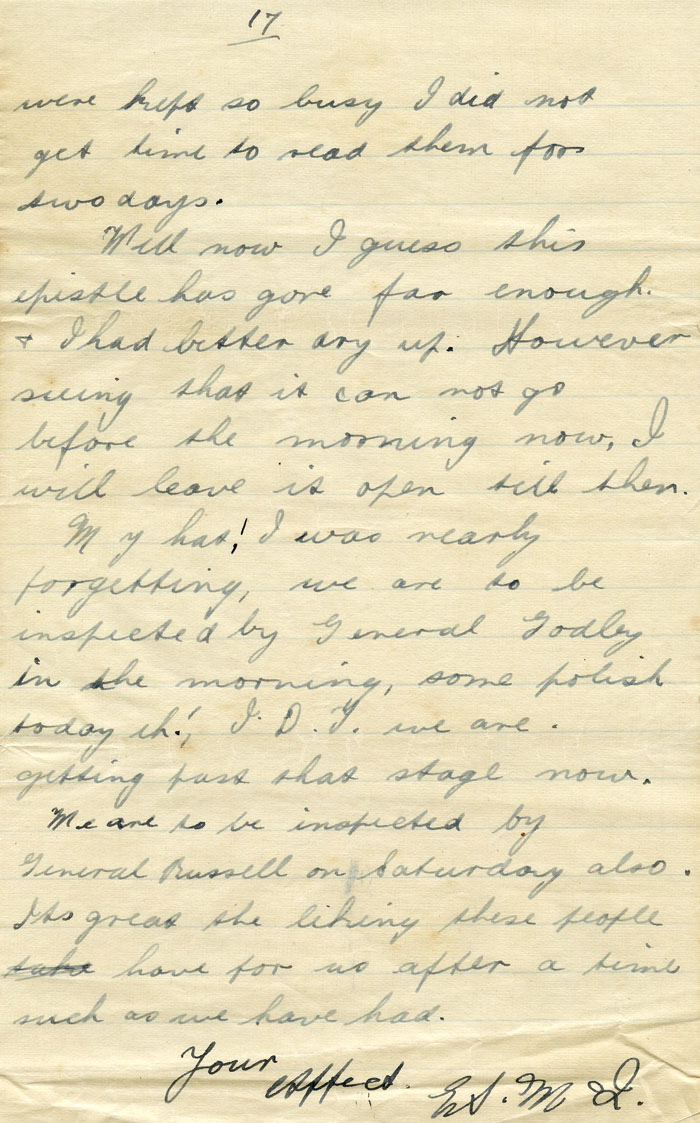 17
were kept so busy I did not
get time to read them for
two days.
Well now I guess this
epistle has gone far enough.
& I had better dry up. However
seeing that it can not go
before the morning now, I
will leave it open till then.
My hat! I was nearly
forgetting, we are to be
inspected by General Godley
in the morning, some polish
today eh! I. D. T. we are
getting past that stage now.
We are to be inspected by
General Russell on Saturday also.
Its great the liking these people
take have for us after a time
such as we have had.
Your
affect.